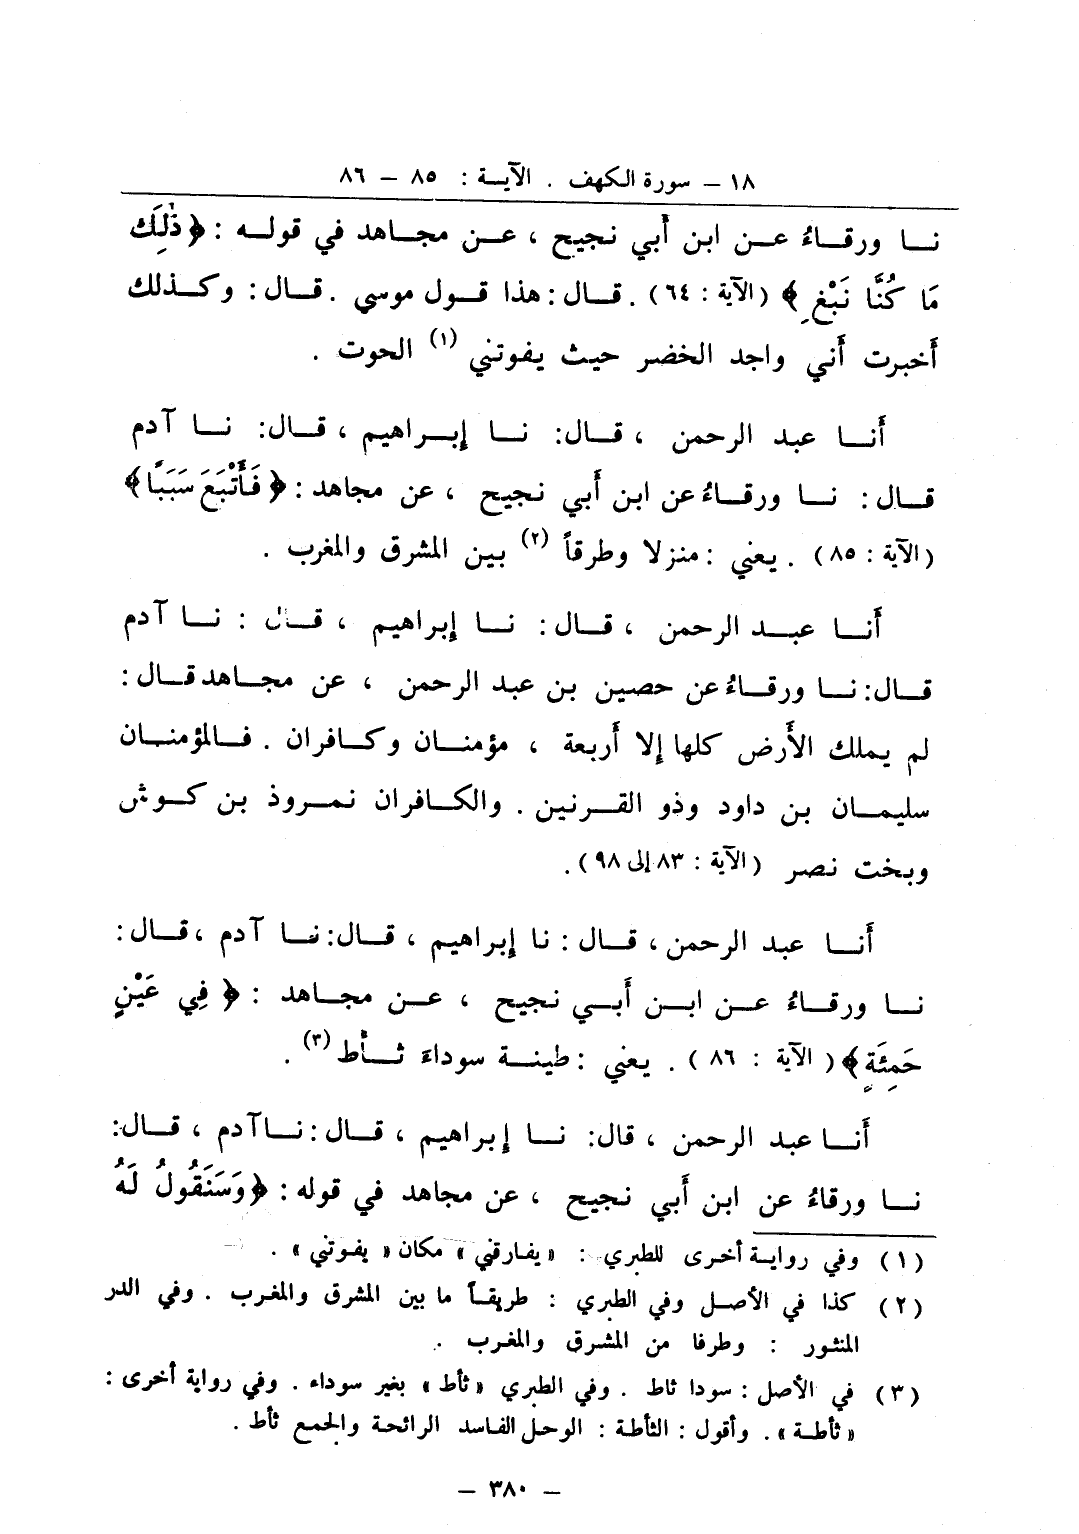 ١٨ – سورة الكهف . الآيـة : ٨٥ – ٨٦
نـا ورقـاءُ عـن ابن أَبي نجيح ، عـن مجـاهد في قولـه : ﴿ ذٰلِكَ
مَا كُنَّا نَبْغِ ﴾ (الآية : ٦٤) . قـال : هذا قـول موسي . قـال : وكـذلك
أَخبرت أَني واجد الخضر حيث يفوتني (١) الحوت .
أَنـا عبد الرحمن ، قـال : نـا إبـراهيم ، قـال : نـا آدم
قـال : نـا ورقـاءُ عن ابن أَبي نجيح ، عن مجاهد : ﴿ فَأَتْبَعَ سَبَبًا ﴾
(الآية : ٨٥) . يعني : منزلا وطرقاً (٢) بين المشرق والمغرب .
أَنـا عبـد الرحمن ، قـال : نـا إبراهيم ، قـال : نـا آدم
قـال : نـا ورقـاءُ عن حصين بن عبد الرحمن ، عن مجـاهد قـال :
لم يملك الأَرض كلها إلا أَربعة ، مؤمنـان وكـافران . فـالمؤمنـان
سليمـان بن داود وذو القـرنين . والكـافران نمـروذ بن كـوش
وبخت نصر (الآية : ٨٣ إلى ٩٨) .
أَنـا عبد الرحمن ، قـال : نا إبراهيم ، قـال : نـا آدم ، قـال :
نـا ورقـاءُ عـن ابـن أَبـي نجيح ، عـن مجـاهد : ﴿ فِي عَيْنٍ
حَمِئَةٍ ﴾ ( الآية : ٨٦ ) . يعني : طينـة سوداءَ ثـأط (٣) .
أَنـا عبد الرحمن ، قال : نـا إبراهيم ، قـال : نـا آدم ، قـال :
نـا ورقاءُ عن ابن أَبي نجيح ، عن مجاهد في قوله : ﴿ وَسَنَقُولُ لَهُ
(١) وفي روايـة أخرى للطبري : « يفـارقني » مكان « يفـوتني » .
(٢) كذا في الأصـل وفي الطبري : طريقـاً ما بين المشرق والمغرب . وفي الدر
المنثور : وطرفا من المشرق والمغرب .
(٣) في الأصل : سودا ثاط . وفي الطبري « ثأط » بغير سوداء . وفي رواية أخرى :
« ثأطـة » . وأقول : الثأطة : الوحل الفاسد الرائحة والجمع ثأط .
– ٣٨٠ –